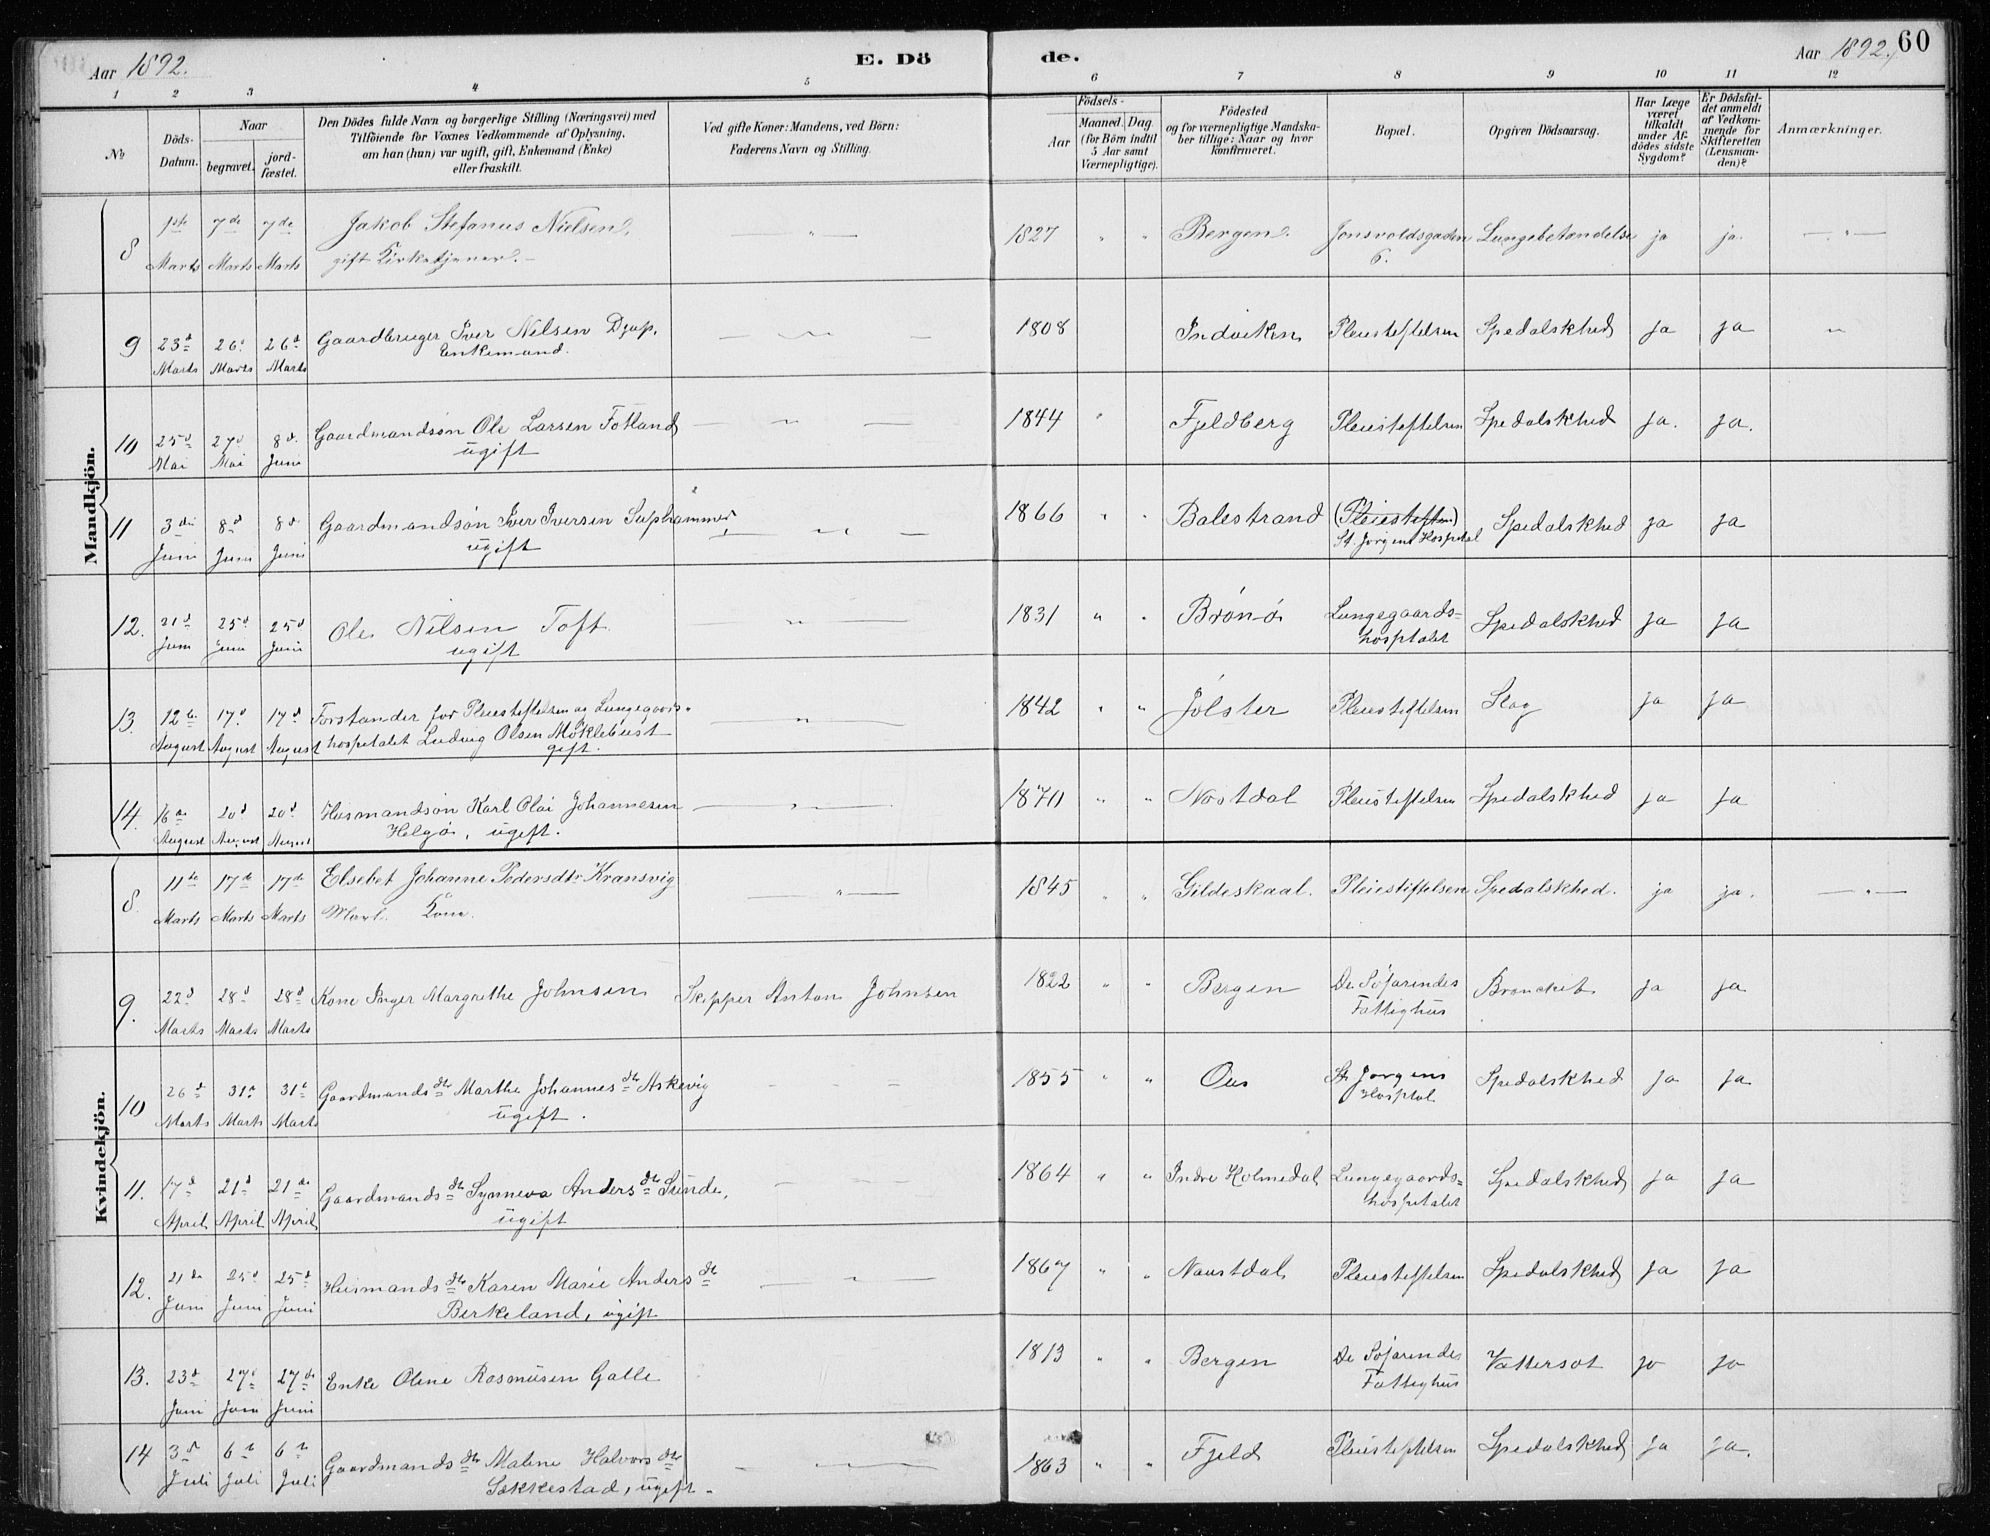 Aar 1892.
E. Dö
de.
Aar 1892.
60
1 2 3 4 5 6 7 8 9 10 11 12
No
Döds-Datum.
Naar
begravet.
jord-fæstet.
Den Dödes fulde Navn og borgerlige Stilling (Næringsvei) med
Tilföiende for Voxnes Vedkommende af Oplysning,
om han (hun) var ugift, gift, Enkemand (Enke)
eller fraskilt.
Ved gifte Koner: Mandens, ved Börn:
Faderens Navn og Stilling.
Födsels-
Aar
Maaned. Dag.
(for Börn indtil
5 Aar samt
Værnepligtige).
Födested
og for værnepligtige Mandska-
ber tillige: Naar og hvor
konfirmeret.
Bopæl.
Opgiven Dödsaarsag.
Har Læge
været
tilkaldt
under Af-
dödes sidste
Sygdom?
Er Dödsfal-
det anmeldt
af Vedkom-
mende for
Skifteretten
(Lensman-
den)?
Anmærkninger.
Mandkjön.
8 1ste Marts 7de Marts 7de Marts Jakob Stefanus Nielsen, gift Kirketjener. — " — 1827 " " Bergen. Jonsvoldsgaden 6. Lungebetændelse ja ja. — " —
9 23d Marts 26d Marts 26d Marts Gaardbruger Iver Nilsen Djup, Enkemand. — " — 1808 Indviken Pleiestiftelsen Spedalskhed Ja Ja "
10 25d Mai 27d Mai 8d Juni Gaardmandsøn Ole Larsen Fotland ugift — " — 1844 " Fjeldberg Pleiestiftelsen Spedalskhed Ja. Ja.
11 3die Juni 8d Juni 8d Juni Gaardmandsøn Iver Iversen Suphammer, ugift — " — 1866 " " Balestrand (Pleiestiften) St. Jørgens Hospital Spedalskhed Ja Ja
12. 21d Juni 25d Juni 25d Juni Ole Nilsen Toft ugift " — 1831 " " Brønø Lungegaards-hospitalet Spedalskhed Ja Ja
13. 12te August 17d August 17d August Forstander for Pleiestiftelsen og Lungegaards-hospitalet Ludvig Olsen Møklebust gift. " — 1842 " " Jølster Pleiestiftelsen Slag Ja Ja
14. 16de August 20d August 20d August Husmandsøn Karl Olai Johannesen Helgø, ugift. — " — 1870 " " Nøstdal Pleiestiftelsen Spedalskhed Ja Ja
Kvindekjön.
8. 11te Marts 17de Marts 17de Marts Elsebet Johanne Pedersdtr Kransvig Kone — " — 1845 " " Gildeskaal. Pleiestiftelsen Spedalskhed. ja ja. — " —
9. 22d Marts 28d Marts 28d Marts Kone Inger Margrethe Johnsen Skipper Anton Johnsen 1822 " " Bergen De Søfarendes Fattighus Bronckit Ja Ja
10 26d Marts 31te Marts 31te Marts Gaardmandsdtr Marthe Johannesdtr Askevig ugift. - - - 1855 " " Ous St Jørgens Hosptal Spedalskhed Ja Ja
11. 17d April 21d April 21de April Gaardmandsdtr Synneva Andersdtr Sunde, ugift — — 1864 " " Indre Holmedal Lungegaards-hospitalet Spedalskhed Ja Ja
12. 21de Juni 25d Juni 25d Juni Husmandsdtr Karen Marie Andersdtr Birkeland, ugift — " — 1867 " " Naustdal Pleiestiftelsen Spedalskhed Ja Ja
13. 23d Juni 27d Juni 27de Juni Enke Oline Rasmusen Galle 1813 " " Bergen De Søfarendes Fattighus Vattersot Ja Ja
14 3d Juli 6te Juli 6te Juli Gaardmandsdtr Malene Halvorsdtr Sekkestad, ugift. — " — 1863 " " Fjeld Pleiestiftelsen Spedalskhed Ja Ja.